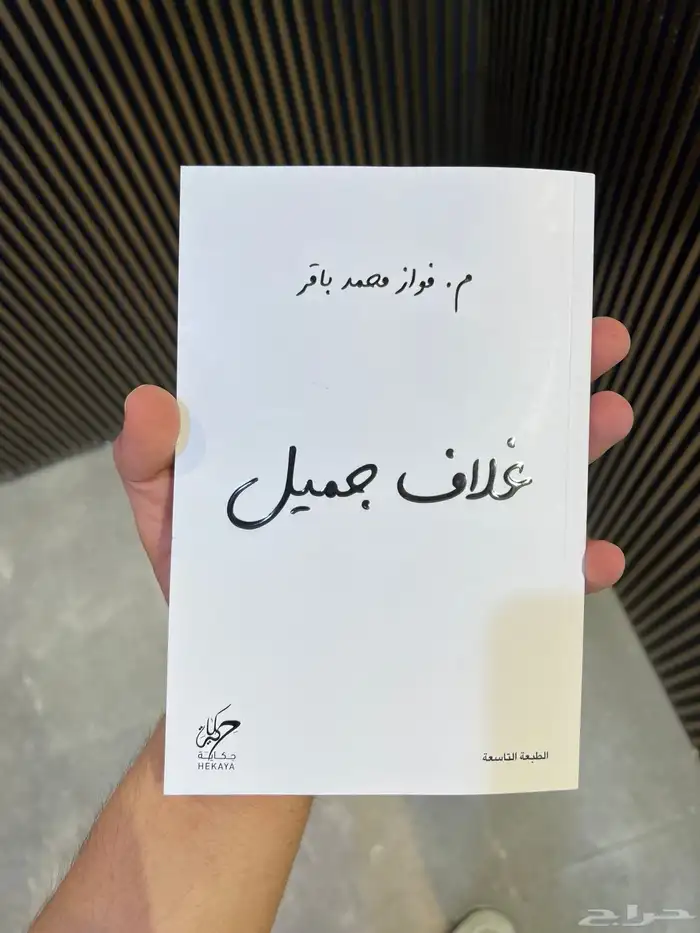 م. فواز محمد باقر
غلاف جميل
حكاية
حكاية
HEKAYA
الطبعة التاسعة
حراج